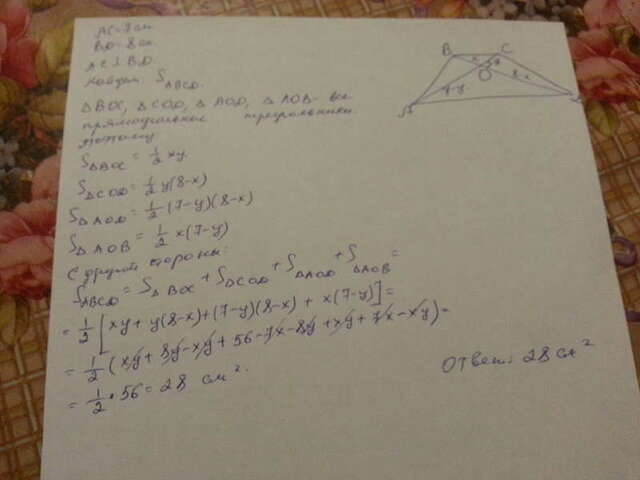 AC=7 см
BD=8 см.
AC⊥BD.
Найдем S ABCD.
Δ BOC, Δ COD, Δ AOD, Δ AOB - все
прямоугольные треугольники.
Поэтому
S Δ BOC = 1/2 xy.
S Δ COD = 1/2 y(8-x)
S Δ AOD = 1/2 (7-y)(8-x)
S Δ AOB = 1/2 x(7-y)
С другой стороны:
S ABCD = S Δ BOC + S Δ COD + S Δ AOD + S Δ AOB =
= 1/2 [xy + y(8-x)+(7-y)(8-x) + x(7-y)] =
= 1/2 (xy + 8y - xy + 56 - 7x - 8y + xy + 7x - xy) =
= 1/2 • 56 = 28 см².
Ответ: 28 см²
B C
x y
O
7-y 8-x
A